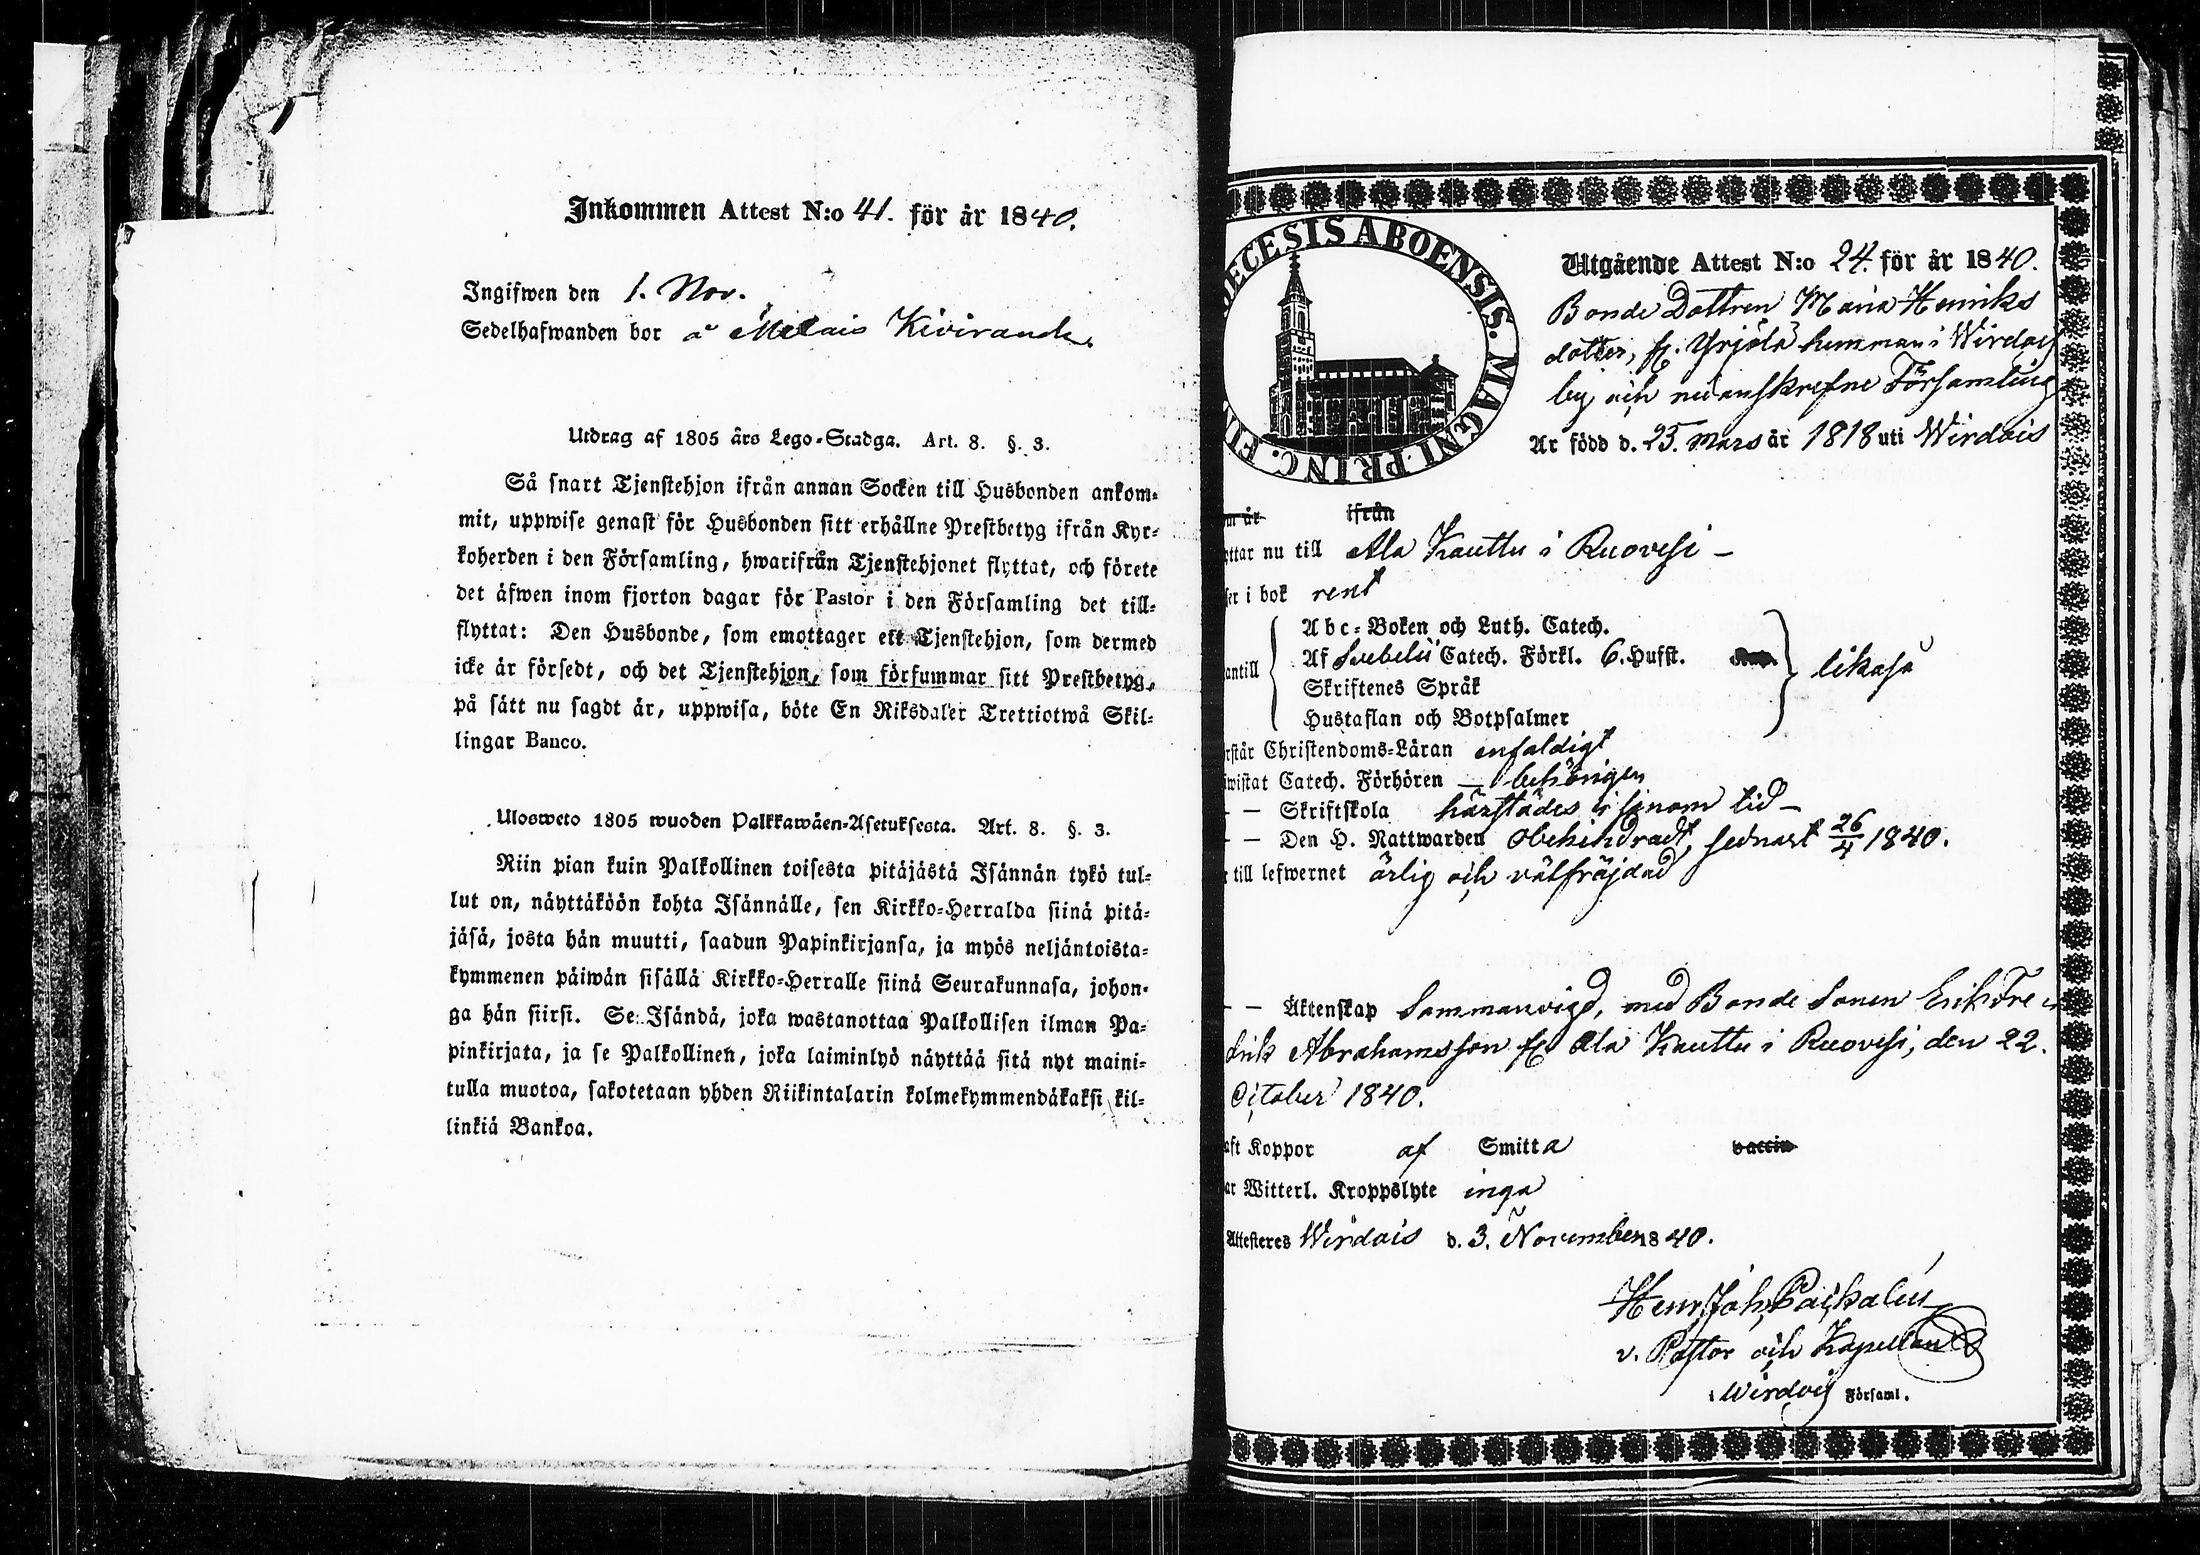 Inkommen Attest N:o 41. för år 1840.
Ingifwen den 1. Nov.
Sedelhafwanden bor å Melais Kivirande.
Utdrag af 1805 års Lego-Stadga. Art. 8. §. 3.
Så snart Tjenstehjon ifrån annan Socken till Husbonden ankom-
mit, uppwise genast för Husbonden sitt erhållne Prestbetyg ifrån Kyr-
koherden i den Församling, hwarifrån Tjenstehjonet flyttat, och förete
det äfwen inom fjorton dagar för Pastor i den Församling det till-
flyttat: Den Husbonde, som emottager ett Tjenstehjon, som dermed
icke är försedt, och det Tjenstehjon, som försummar sitt Prestbetyg,
på sätt nu sagdt är, uppwisa, böte En Riksdaler Trettiotwå Skil-
lingar Banco.
Ulosweto 1805 wuoden Palkkawäen-Asetuksesta. Art. 8. §. 3.
Niin pian kuin Palkollinen toisesta pitäjästä Isännän tykö tul-
lut on, näyttäköön kohta Isännälle, sen Kirkko-Herralda siinä pitä-
jäsä, josta hän muutti, saadun Papinkirjansa, ja myös neljäntoista-
kymmenen päiwän sisällä Kirkko-Herralle siinä Seurakunnasa, johon-
ga hän siirsi. Se Isändä, joka wastanottaa Palkollisen ilman Pa-
pinkirjata, ja se Palkollinen, joka laiminlyö näyttää sitä nyt maini-
tulla muotoa, sakotetaan yhden Riikintalarin kolmekymmendäkaksi kil-
linkiä Bankoa.
ECESIS ABOENSIS. MAGNI PRINC. FI
Utgående Attest N:o 24. för år 1840.
Bonde Dottren Maria Henriks
dotter, fr. Yrjölä hemman i Wirdois
by och nedanskrefne Församling
Är född d. 25. Mars år 1818 uti Wirdois
m år ifrån
yttar nu till Ala Kauttu i Ruovesi -
ser i bok rent
Abc-Boken och Luth. Catech.
Af Svebelii Catech. Förkl. 6. Hufst.
antill likaså
Skriftenes Språk
Hustaflan och Botpsalmer
rstår Christendoms-Läran enfaldigt
wistat Catech. Förhören - behörigen
- - Skriftskola härstädes i sinom tid -
- - Den H. Nattwarden obehindradt, sednast 26/4 1840.
r till lefwernet ärlig och välfräjdad
- - Äktenskap Sammanvigd, med Bonde Sonen Erik Fre
drik Abrahamsson fr. Ala Kauttu i Ruovesi, den 22.
October 1840.
aft Koppor af Smitta vaccin
ar Witterl. Kroppslyte inga
Attesteres Wirdois d. 3. November 1840.
Henr. Joh.
v. Pastor och Kapellan
i Wirdois Församl.